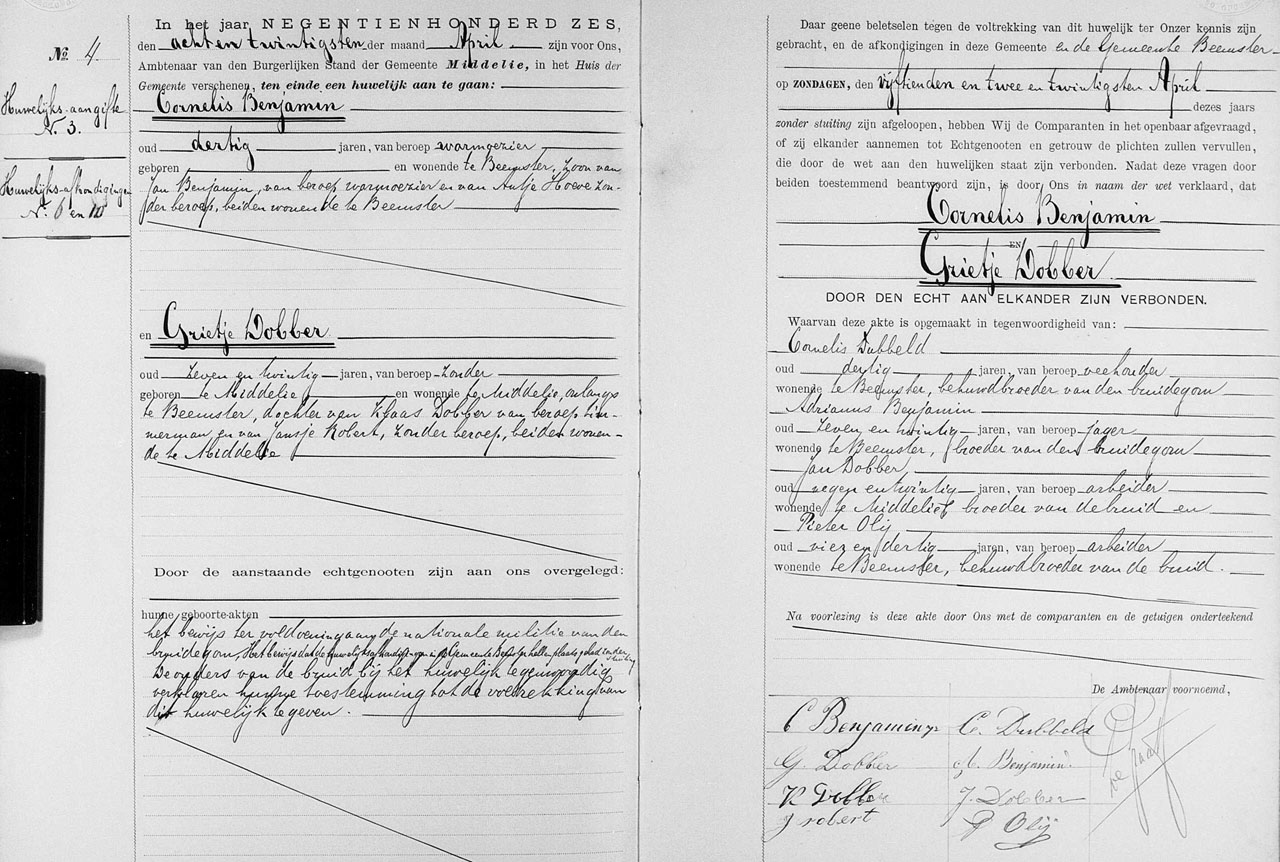 Nº 4
Huwelijks-aangifte
Nº 3.
Huwelijks-afkondigingen
Nº 6 en 10
In het jaar NEGENTIENHONDERD ZES,
den achtentwintigsten der maand April zijn voor Ons,
Ambtenaar van den Burgerlijken Stand der Gemeente Middelie, in het Huis der
Gemeente verschenen, ten einde een huwelijk aan te gaan:
Cornelis Benjamin
oud dertig jaren, van beroep warmoezier
geboren en wonende te Beemster, Zoon van
Jan Benjamin, van beroep warmoezier en van Antje Hoeve Zon-
der beroep, beiden wonende te Beemster
en Grietje Dobber
oud Zeven en twintig jaren, van beroep Zonder
geboren te Middelie en wonende te Middelie, onlangs
te Beemster, dochter van Klaas Dobber van beroep tim-
merman en van Jansje Robert, Zonder beroep, beiden wonen-
de te Middelie
Door de aanstaande echtgenooten zijn aan ons overgelegd:
hunne geboorte-akten
het bewijs ter voldoening aan de nationale militie van den
bruidegom, Het bewijs dat de huwelijksafkondigingen in de Gemeente Beemster hebben plaats gehad zonder
stuiting
De ouders van de bruid bij het huwelijk tegenwoordig
verklaren hunne toestemming tot de voltrekking van
dit huwelijk te geven.
Daar geene beletselen tegen de voltrekking van dit huwelijk ter Onzer kennis zijn
gebracht, en de afkondigingen in deze Gemeente en de Gemeente Beemster
op ZONDAGEN, den vijftienden en twee en twintigsten April
dezes jaars
zonder stuiting zijn afgeloopen, hebben Wij de Comparanten in het openbaar afgevraagd,
of zij elkander aannemen tot Echtgenooten en getrouw de plichten zullen vervullen,
die door de wet aan den huwelijken staat zijn verbonden. Nadat deze vragen door
beiden toestemmend beantwoord zijn, is door Ons in naam der wet verklaard, dat
Cornelis Benjamin
EN
Grietje Dobber
DOOR DEN ECHT AAN ELKANDER ZIJN VERBONDEN.
Waarvan deze akte is opgemaakt in tegenwoordigheid van:
Cornelis Dubbeld
oud dertig jaren, van beroep veehouder
wonende te Beemster, behuwdbroeder van den bruidegom
Adrianus Benjamin
oud Zeven en twintig jaren, van beroep jager
wonende te Beemster, broeder van den bruidegom
Jan Dobber
oud negen en twintig jaren, van beroep arbeider
wonende te Middelie, broeder van de bruid en
Pieter Olij
oud vier en dertig jaren, van beroep arbeider
wonende te Beemster, behuwdbroeder van de bruid.
Na voorlezing is deze akte door Ons met de comparanten en de getuigen onderteekend
De Ambtenaar voornoemd,
C Benjamin C. Dubbeld
G. Dobber A. Benjamin
K Dobber J. Dobber
J robert P Olij